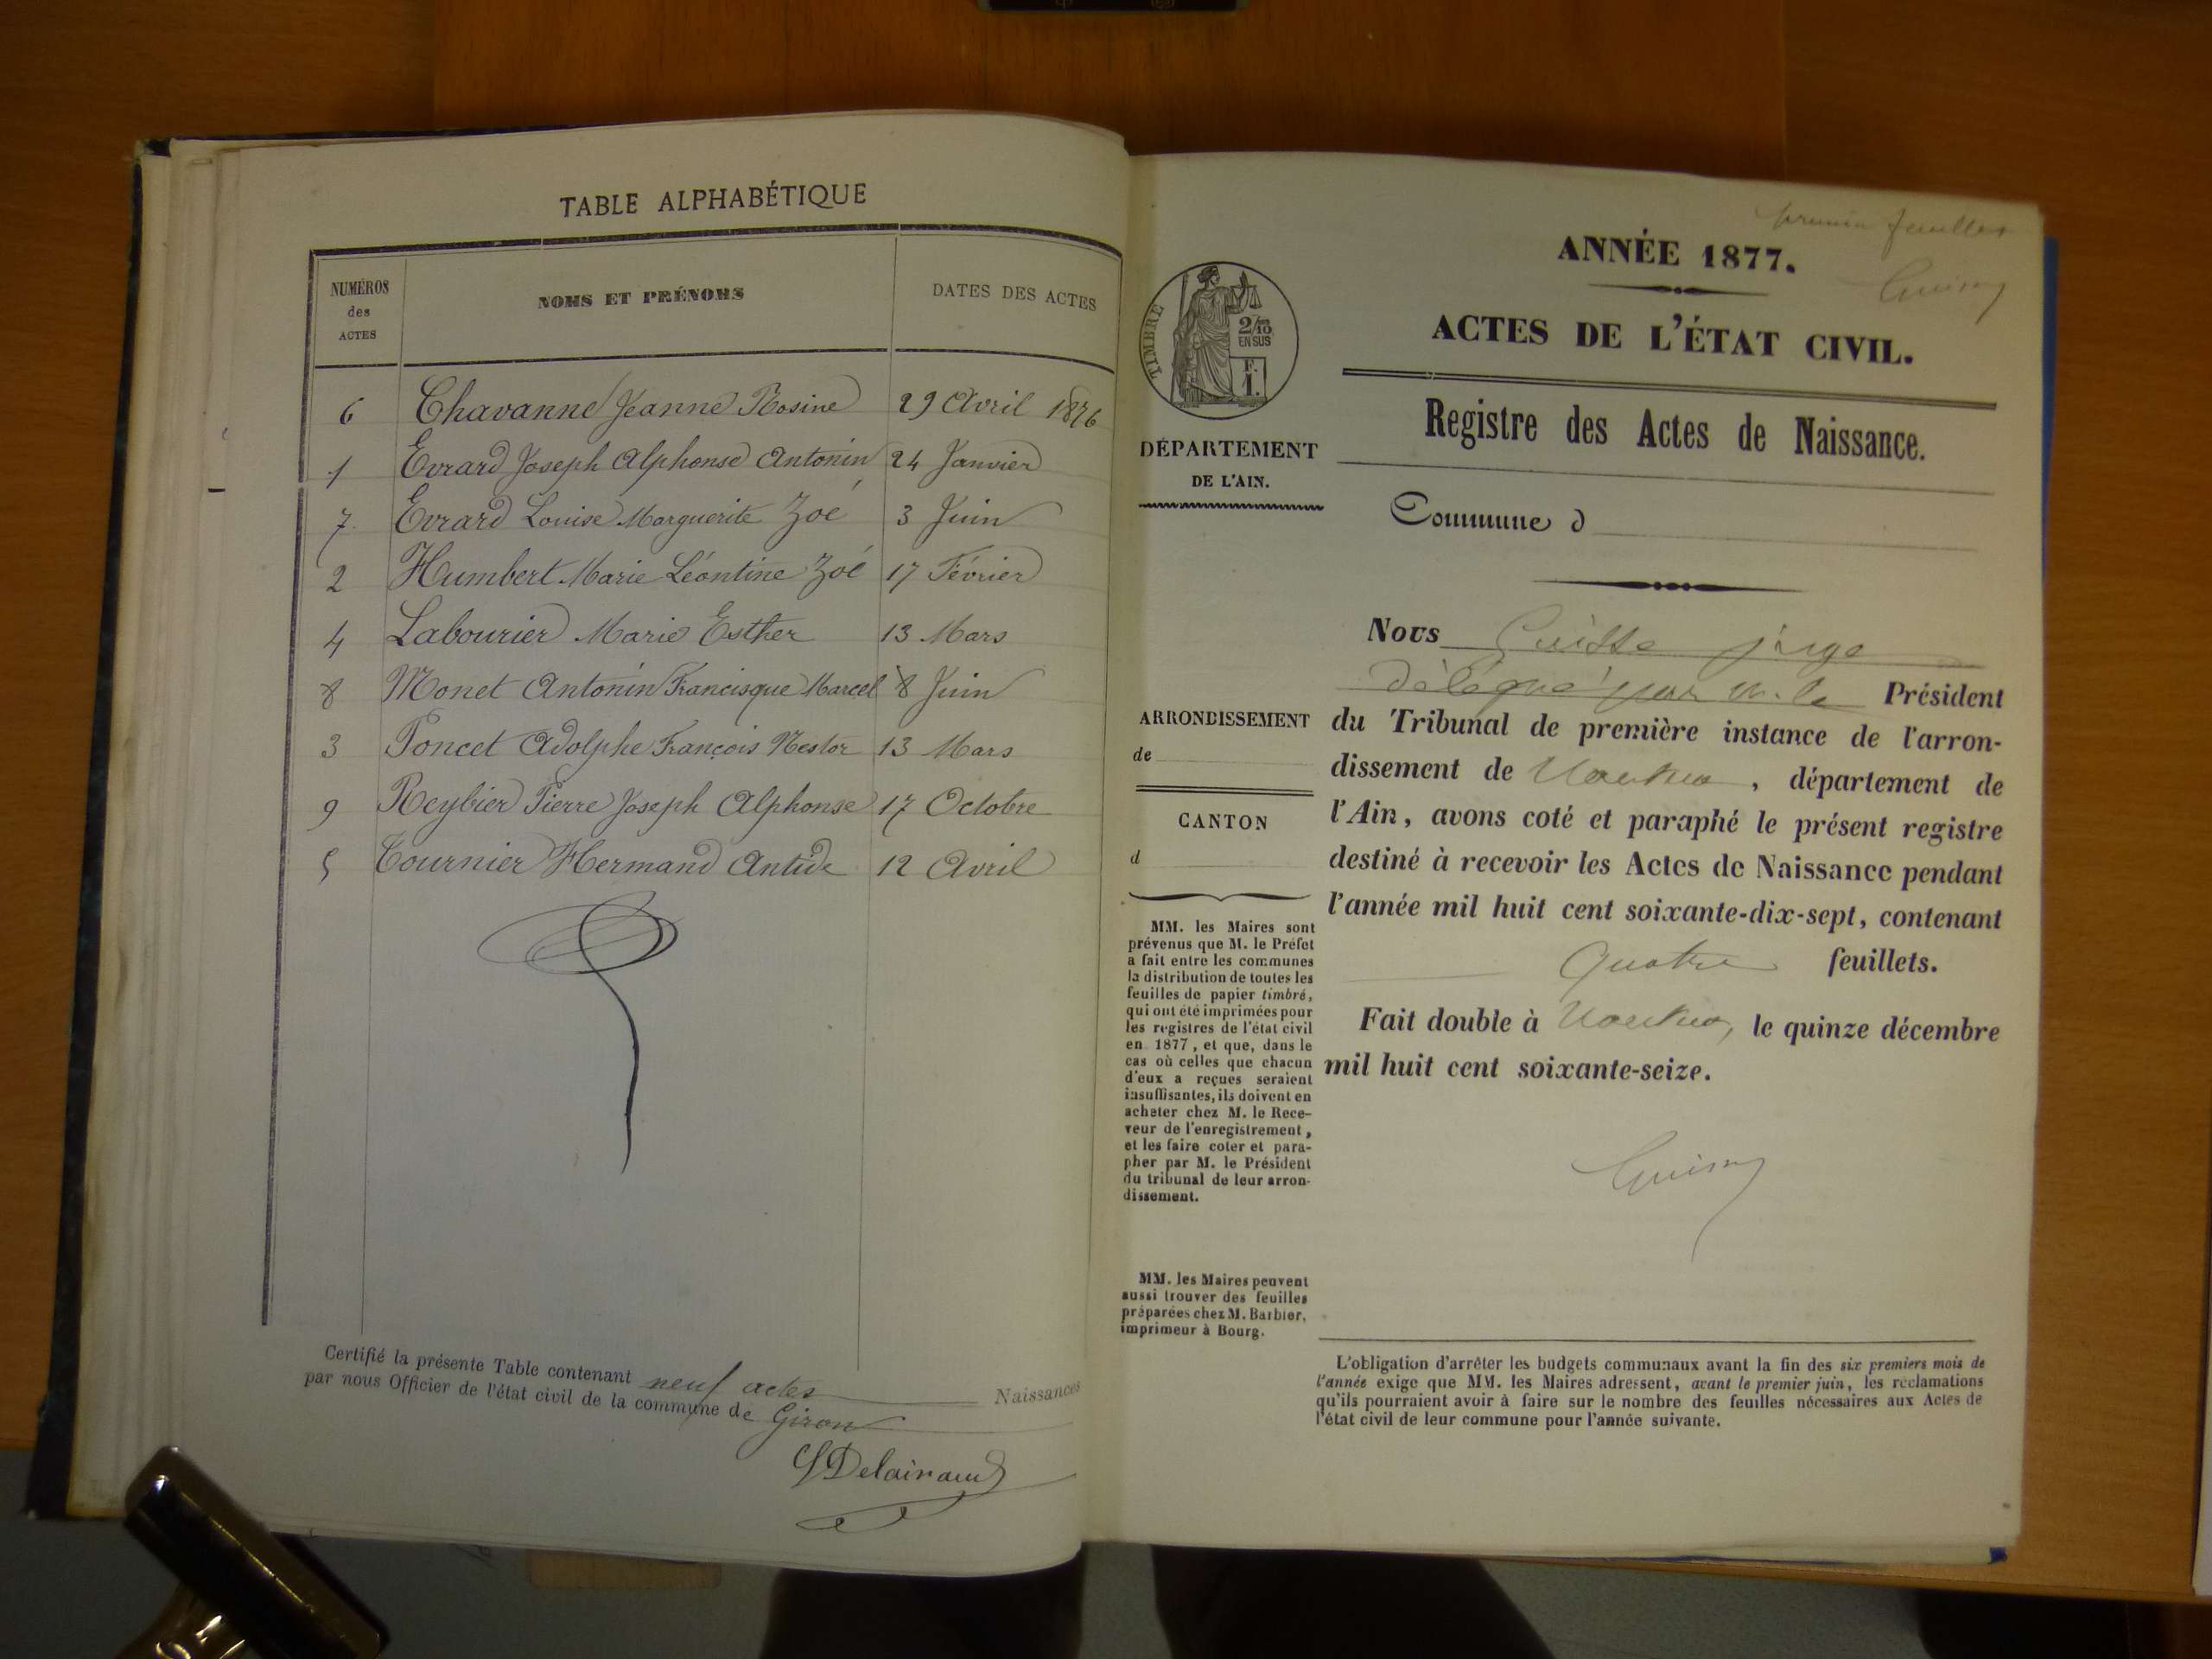 TABLE ALPHABÉTIQUE
NUMÉROS des ACTES
NOMS ET PRÉNOMS
DATES DES ACTES
6 Chavanne Jeanne Rosine 29 Avril 1876
1 Evrard Joseph Alphonse Antonin 24 Janvier
7 Evrard Louise Marguerite Zoé 3 Juin
2 Humbert Marie Léontine Zoé 17 Février
4 Labourier Marie Esther 13 Mars
8 Monet Antonin Francisque Marcel 8 Juin
3 Poncet Adolphe François Nestor 13 Mars
9 Reybier Pierre Joseph Alphonse 17 Octobre
5 Tournier Hermand Antide 12 Avril
Certifié la présente Table contenant neuf actes Naissances
par nous Officier de l'état civil de la commune de Giron
Delairaud
premier feuillet
ANNÉE 1877.
ACTES DE L'ÉTAT CIVIL.
TIMBRE
2/10 EN SUS
F. 1.
DÉPARTEMENT
DE L'AIN.
Registre des Actes de Naissance.
Commune d
ARRONDISSEMENT
de
CANTON
d
MM. les Maires sont
prévenus que M. le Préfet
a fait entre les communes
la distribution de toutes les
feuilles de papier timbré,
qui ont été imprimées pour
les registres de l'état civil
en 1877, et que, dans le
cas où celles que chacun
d'eux a reçues seraient
insuffisantes, ils doivent en
acheter chez M. le Rece-
veur de l'enregistrement,
et les faire coter et para-
pher par M. le Président
du tribunal de leur arron-
dissement.
MM. les Maires peuvent
aussi trouver des feuilles
préparées chez M. Barbier,
imprimeur à Bourg.
Nous juge
délégué par M. le Président
du Tribunal de première instance de l'arron-
dissement de Nantua, département de
l'Ain, avons coté et paraphé le présent registre
destiné à recevoir les Actes de Naissance pendant
l'année mil huit cent soixante-dix-sept, contenant
quatre feuillets.
Fait double à Nantua, le quinze décembre
mil huit cent soixante-seize.
L'obligation d'arrêter les budgets communaux avant la fin des six premiers mois de
l'année exige que MM. les Maires adressent, avant le premier juin, les réclamations
qu'ils pourraient avoir à faire sur le nombre des feuilles nécessaires aux Actes de
l'état civil de leur commune pour l'année suivante.